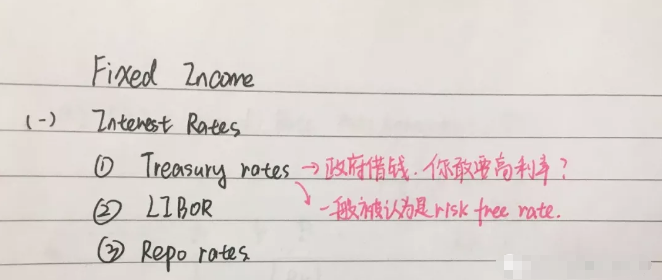 Fixed Income
(一) Interest Rates
① Treasury rates → 政府借钱.你敢要高利率?
② LIBOR 一般被认为是risk free rate.
③ Repo rates